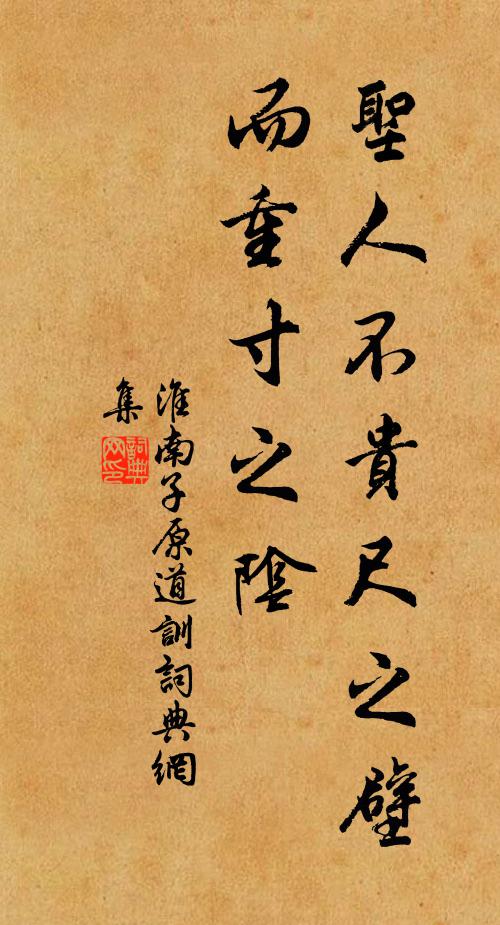 聖人不貴尺之璧
而重寸之陰
淮南子原道訓詞典網
集
詞典網印